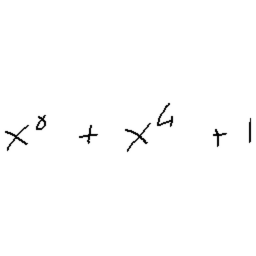 x⁸ + x⁴ + 1